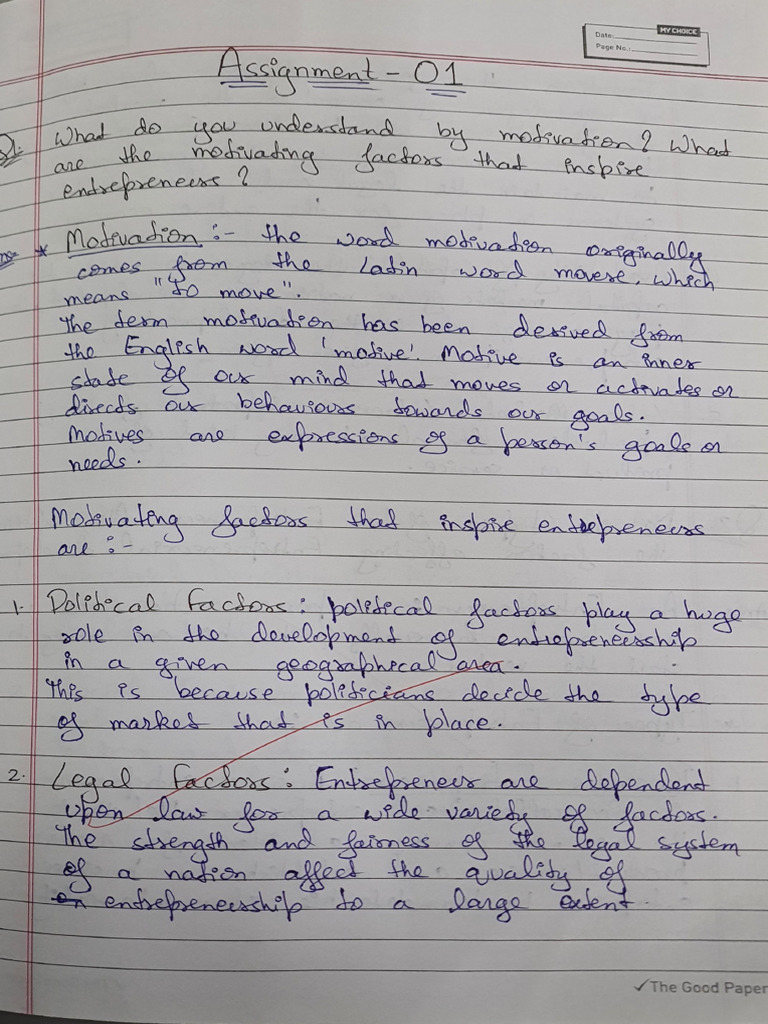 MY CHOICE
Date:
Page No.:
Assignment - 01
Q1. What do you understand by motivation? What
are the motivating factors that inspire
entrepreneurs?
Ans * Motivation :- the word motivation originally
comes from the Latin word movere, which
means "to move".
The term motivation has been derived from
the English word 'motive'. Motive is an inner
state of our mind that moves or activates or
directs our behaviours towards our goals.
Motives are expressions of a person's goals or
needs.
Motivating factors that inspire entrepreneurs
are :-
1. Political Factors: political factors play a huge
role in the development of entrepreneurship
in a given geographical area.
This is because politicians decide the type
of market that is in place.
2. Legal Factors: Entrepreneur are dependent
upon law for a wide variety of factors.
The strength and fairness of the legal system
of a nation affect the quality of
entrepreneurship to a large extent.
✓The Good Paper